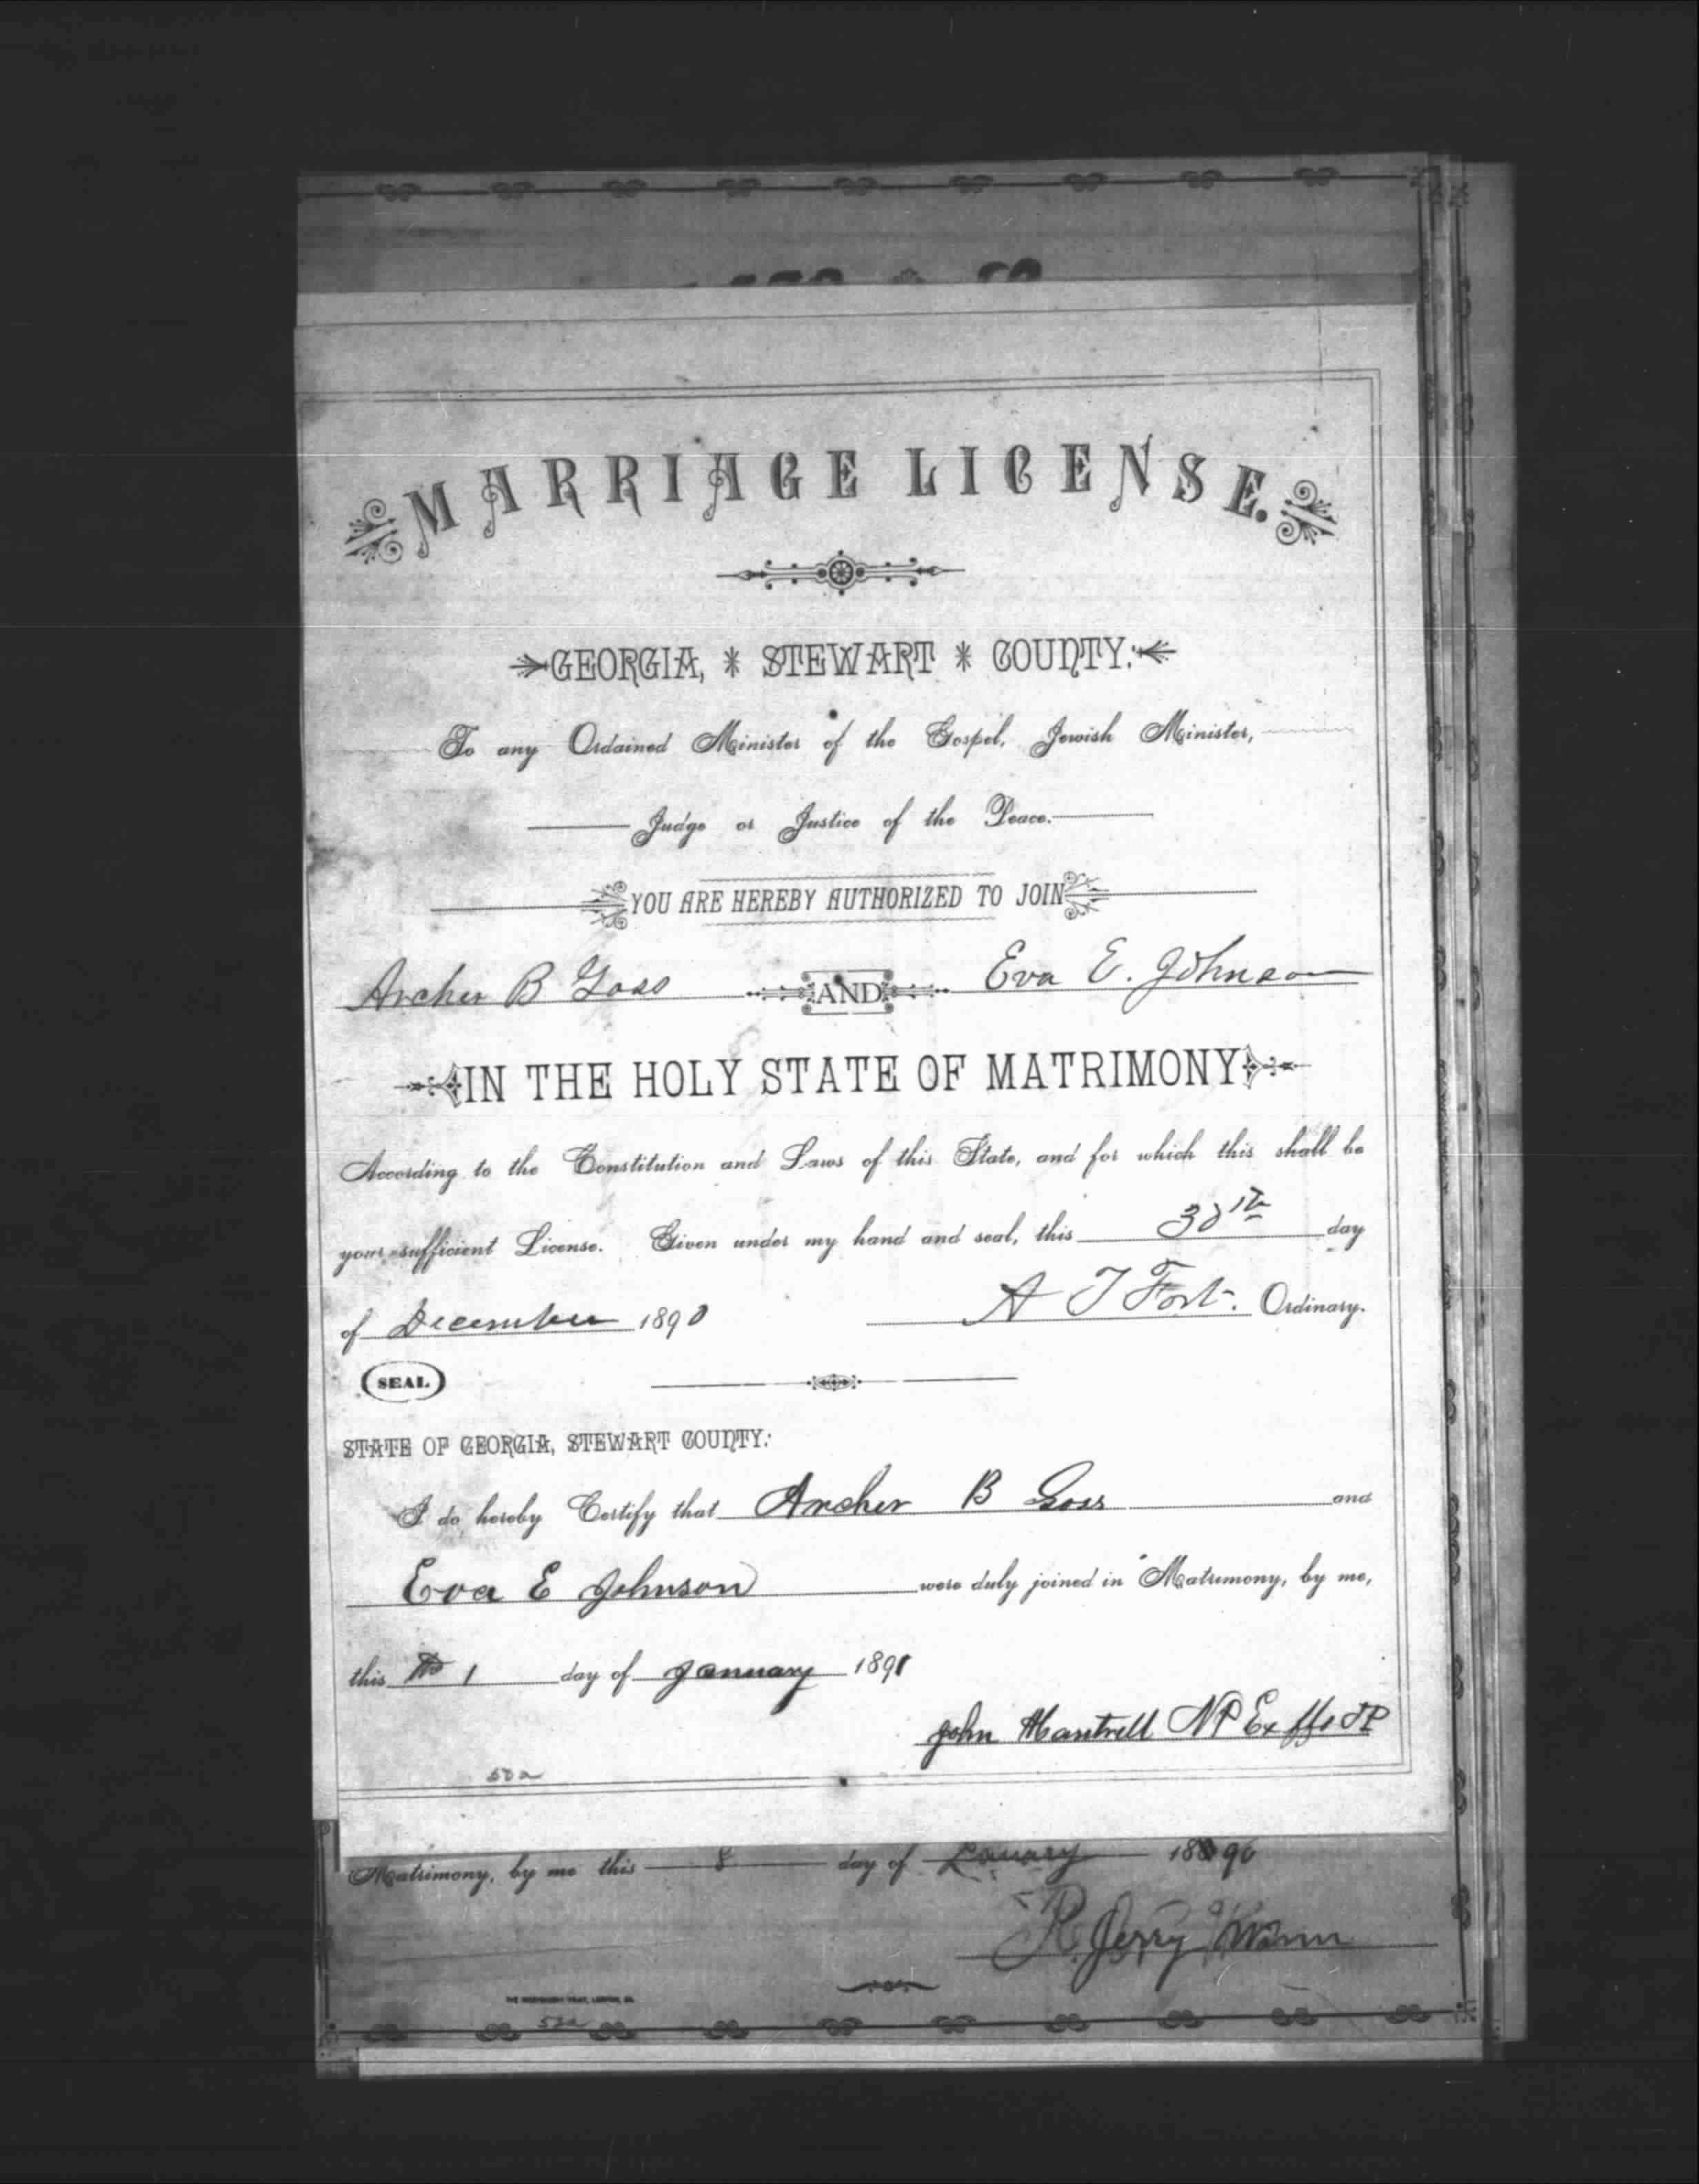 MARRIAGE LICENSE.
GEORGIA, * STEWART * COUNTY:
To any Ordained Minister of the Gospel, Jewish Minister,
Judge or Justice of the Peace.
YOU ARE HEREBY AUTHORIZED TO JOIN
Archer B Goss AND Eva E. Johnson
IN THE HOLY STATE OF MATRIMONY
According to the Constitution and Laws of this State, and for which this shall be
your sufficient License. Given under my hand and seal, this 30th day
of December 1890 A T Fort. Ordinary.
SEAL
STATE OF GEORGIA, STEWART COUNTY:
I do hereby Certify that Archer B Goss and
Eva E Johnson were duly joined in Matrimony, by me,
this 1 day of January 1891
John NP Ex ffo JP
52a
Matrimony, by me this 8 day of 1890
R. Jerry Winn
52a